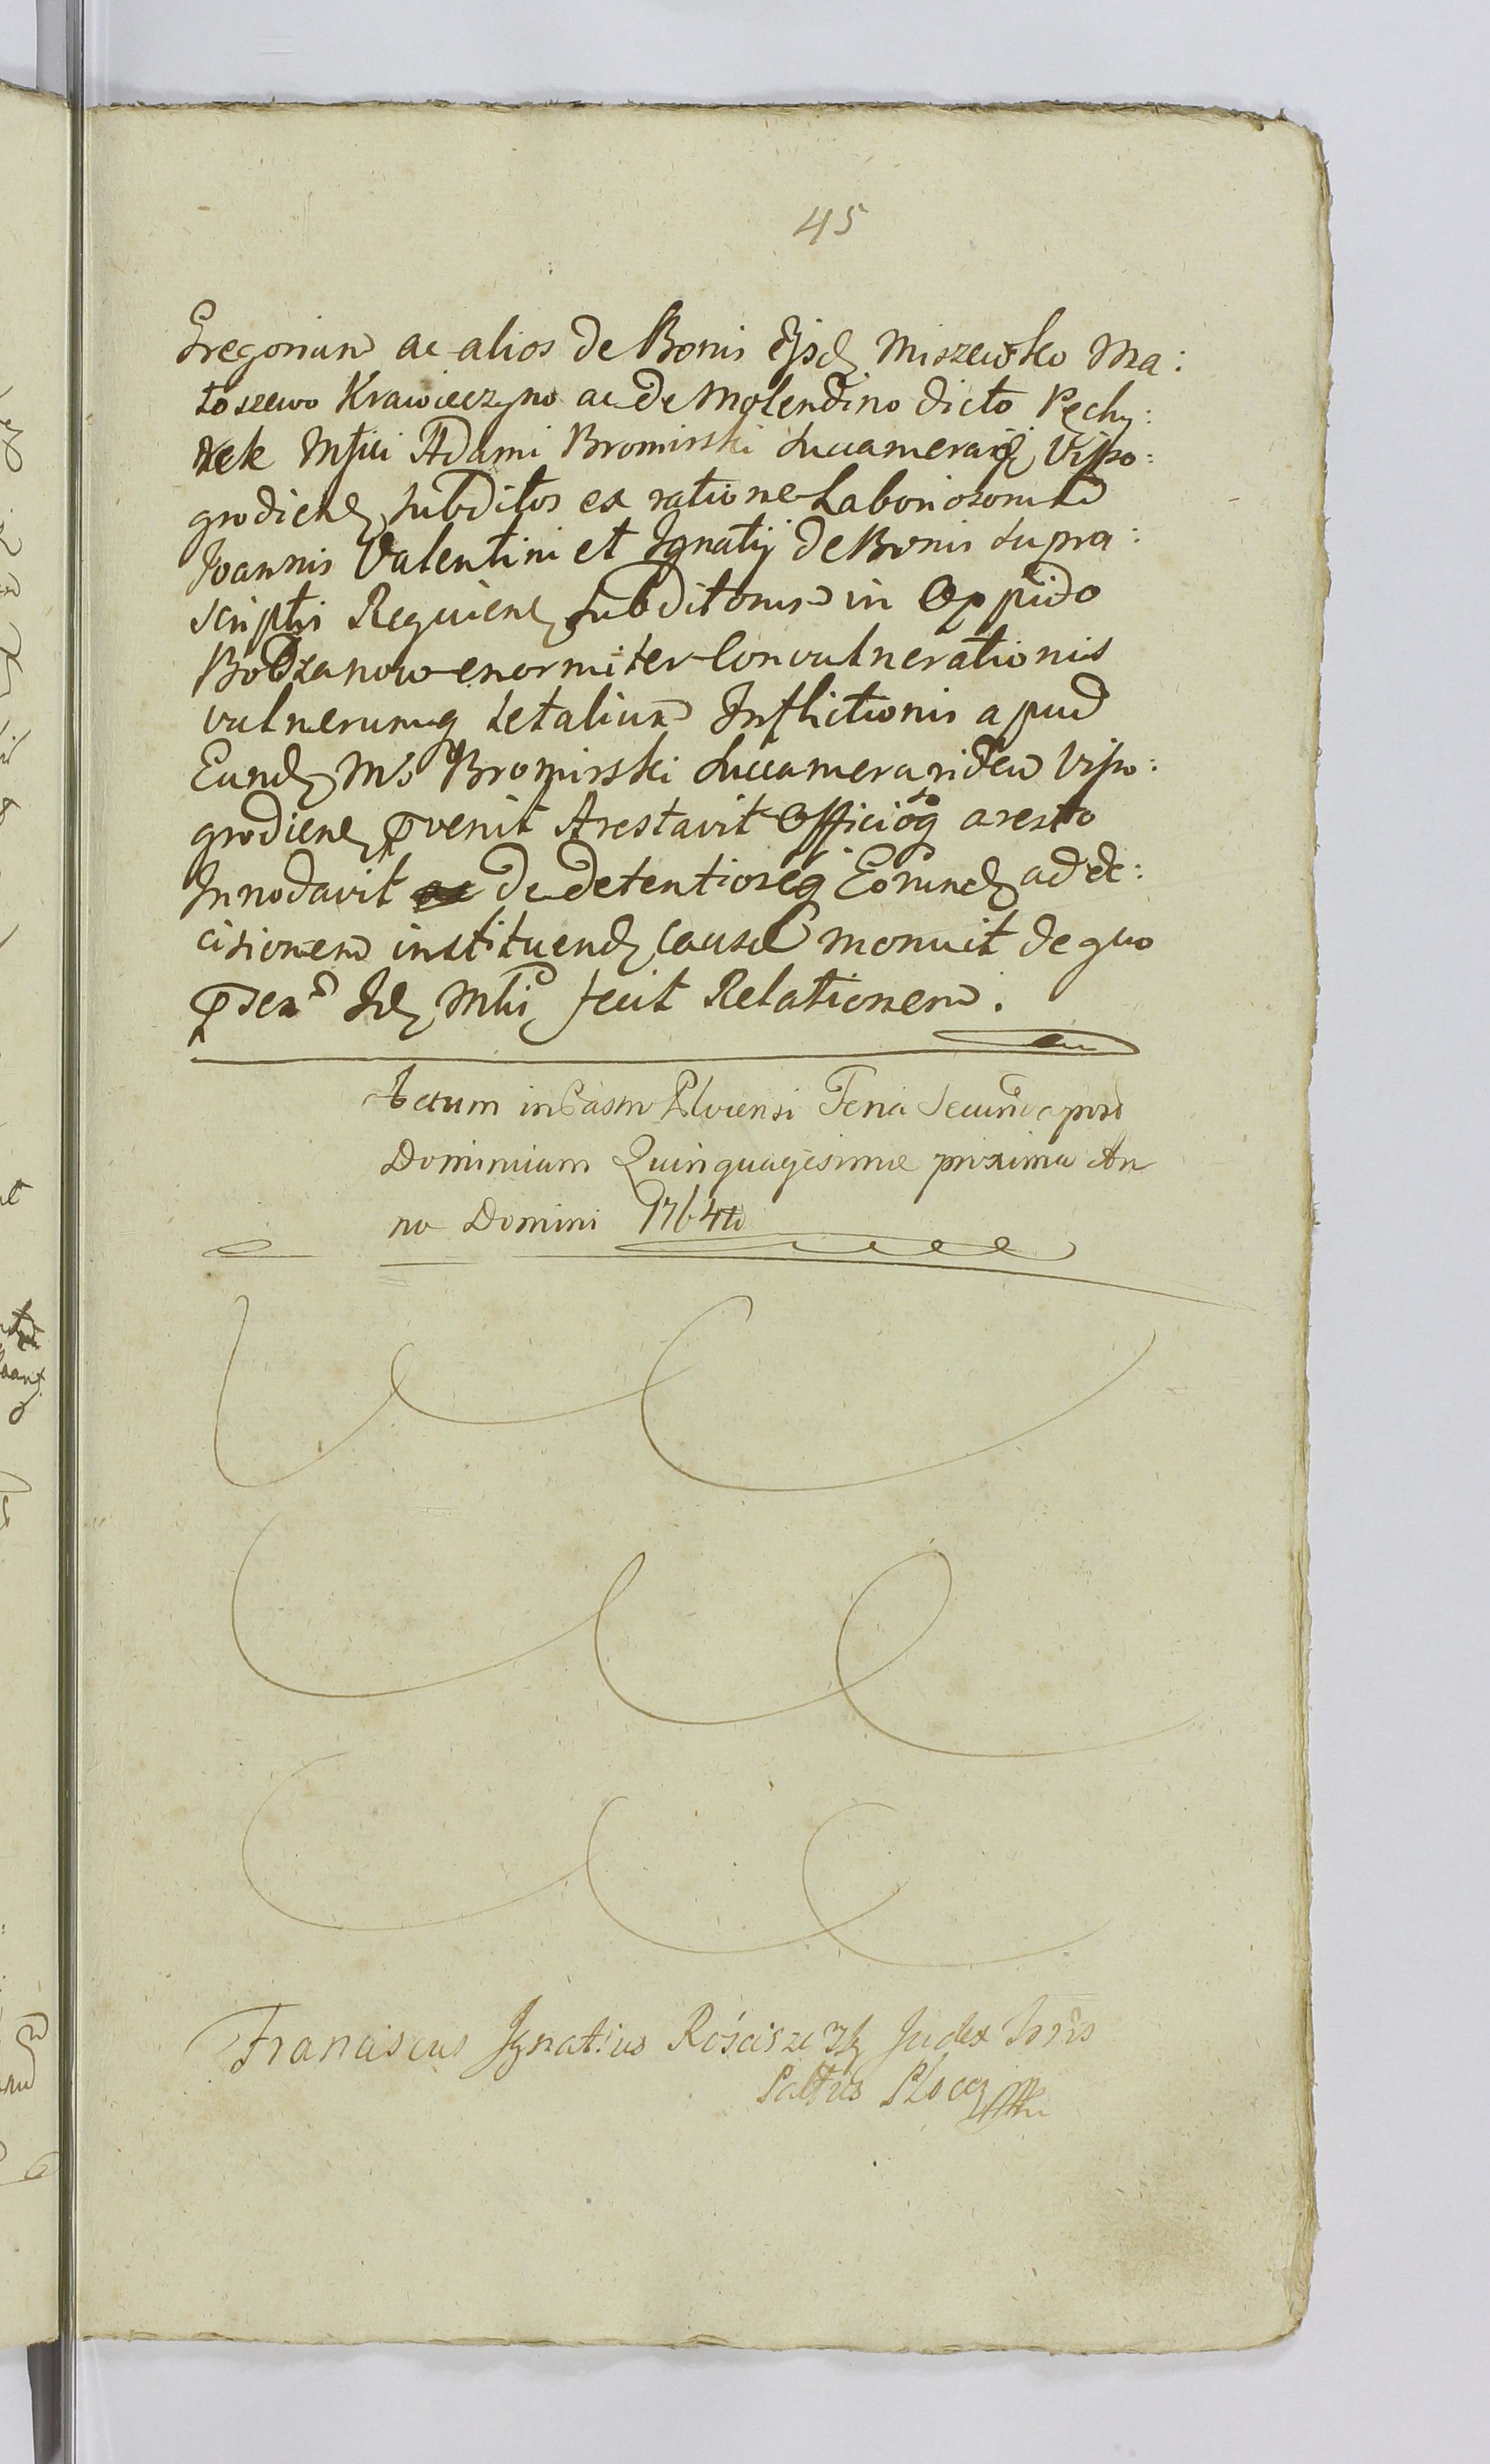 45
Gregorium ac alios de Bonis Ejsd Miszewko Ma:
łoszewo Krawieczyno ac de Molendino dicto Pechy:
nek Mfici Adami Bromirski Succamerarij Visso:
grodien subditos ex ratione Laboriosorum
Joannis Valentini et Ignatij de Bonis supra:
scriptis Requiren subditorum in Oppido
Bodzanow enormiter Convulnerationis
vulnerumq letalium Inflictionis apud
Eund M. Bromirski Succameraridem Visso:
grodien pvenit Arestavit Officioq aresto
Innodavit de detentioneq Eorund ad de:
cisionem instituend causæ monuit de quo
psen Id Mli fecit Relationem.
Actum in Castro Plocensi Feria Secunda post
Dominicam Quinquagesimæ proxima An
no Domini 1764to
Franciscus Ignatius Rościszewski Judex
Paltus Plocen